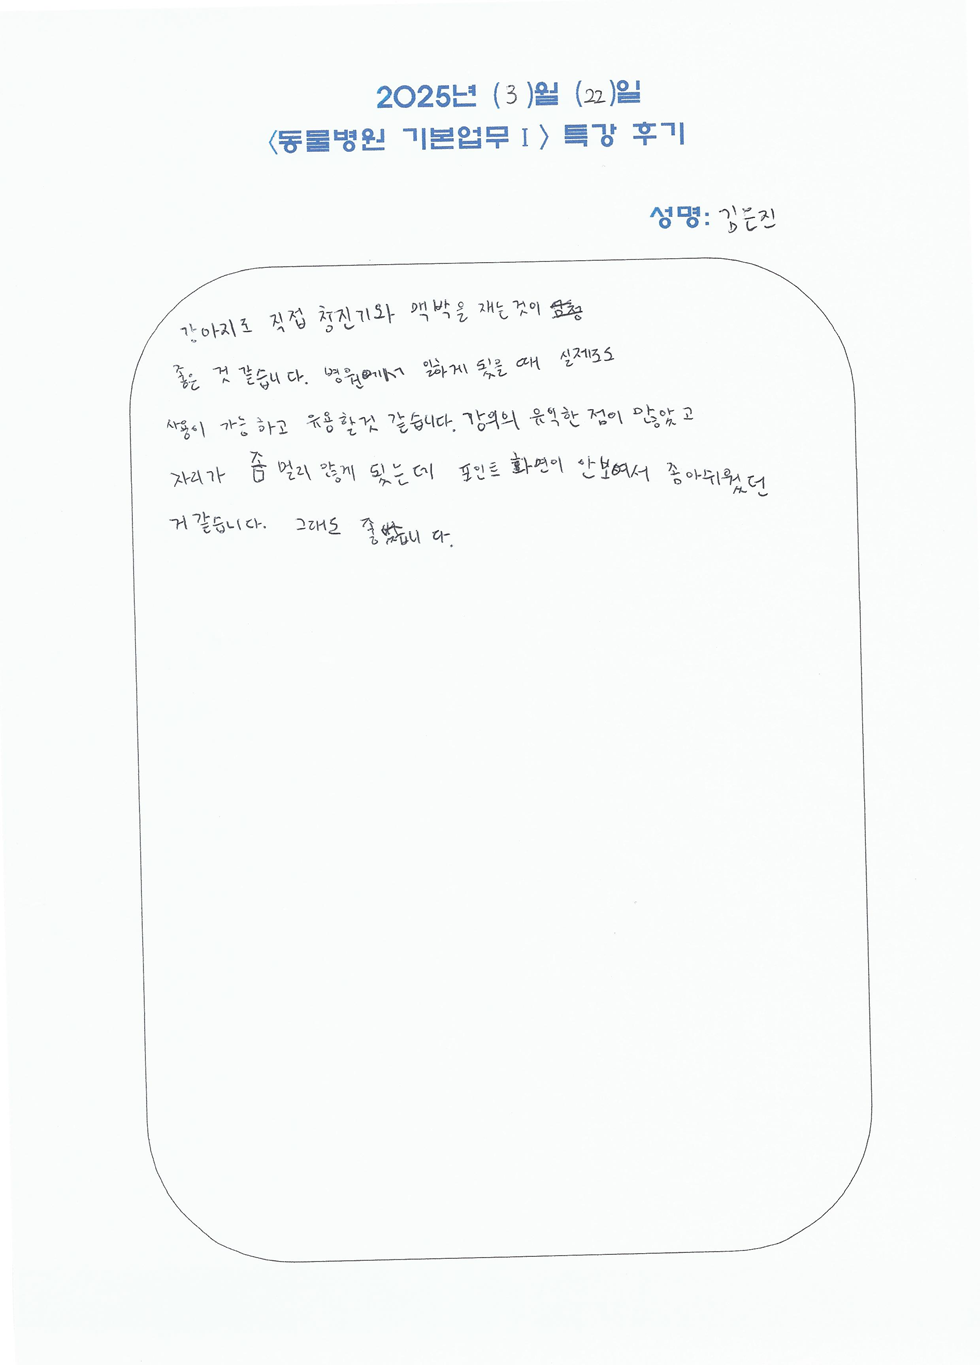 2025년 (3)월 (22)일
<동물병원 기본업무 I> 특강 후기
성명: 김은진
강아지로 직접 청진기와 맥박을 재는것이
좋은 것 같습니다. 병원에서 일하게 됫을 때 실제로도
사용이 가능하고 유용할것 같습니다. 강의의 유익한 점이 많았고
자리가 좀 멀리 앉게 됫는데 포인트 화면이 안보여서 좀아쉬웠던
거 같습니다. 그래도 좋았습니다.